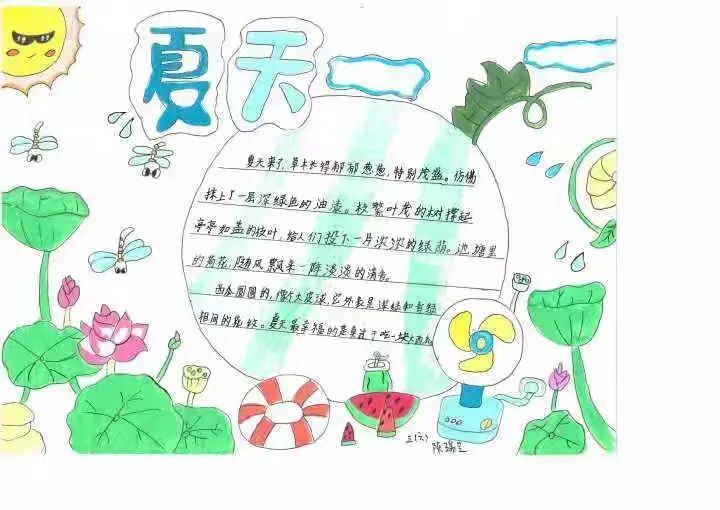 夏天
夏天来了,草木长得郁郁葱葱,特别茂盛。仿佛
抹上了一层深绿色的油漆。枝繁叶茂的树撑起
亭亭如盖的枝叶,给人们投下一片浓浓的绿荫。池塘里
的荷花,随风飘来一阵淡淡的清香。
西瓜圆圆的,像个大皮球,它外表是深绿和青绿
相间的花纹。夏天最幸福的是莫过于吃一块大西瓜
西
三(六)
陈